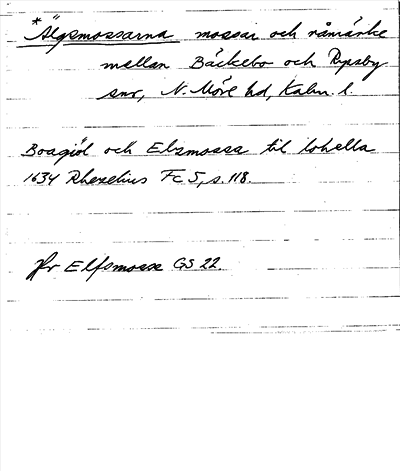 * Älgsmossarna mossar och råmärke
mellan Bäckebo och Ryssby
snr, N. Möre hd, Kalm. l.
Boagiöl och Elzmosse til lohella
1634 Rhezelius Fc 5, s. 118.
Jfr Elfsmosse GS 22.